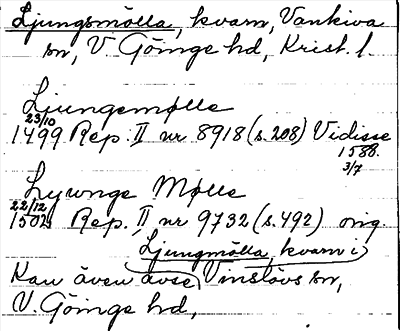 Ljungsmölla, kvarn, Vankiva
sn, V. Göinge hd, Krist. l.
Ljungemølle
23/10
1499 Rep. II nr 8918 (s. 208) Vidisse
1588.
3/7
Lywnge Mølle
22/12
1502 Rep. II nr 9732 (s. 492) orig.
Ljungmölla, kvarn i
Kan även avse Vinslövs sn,
V. Göinge hd,